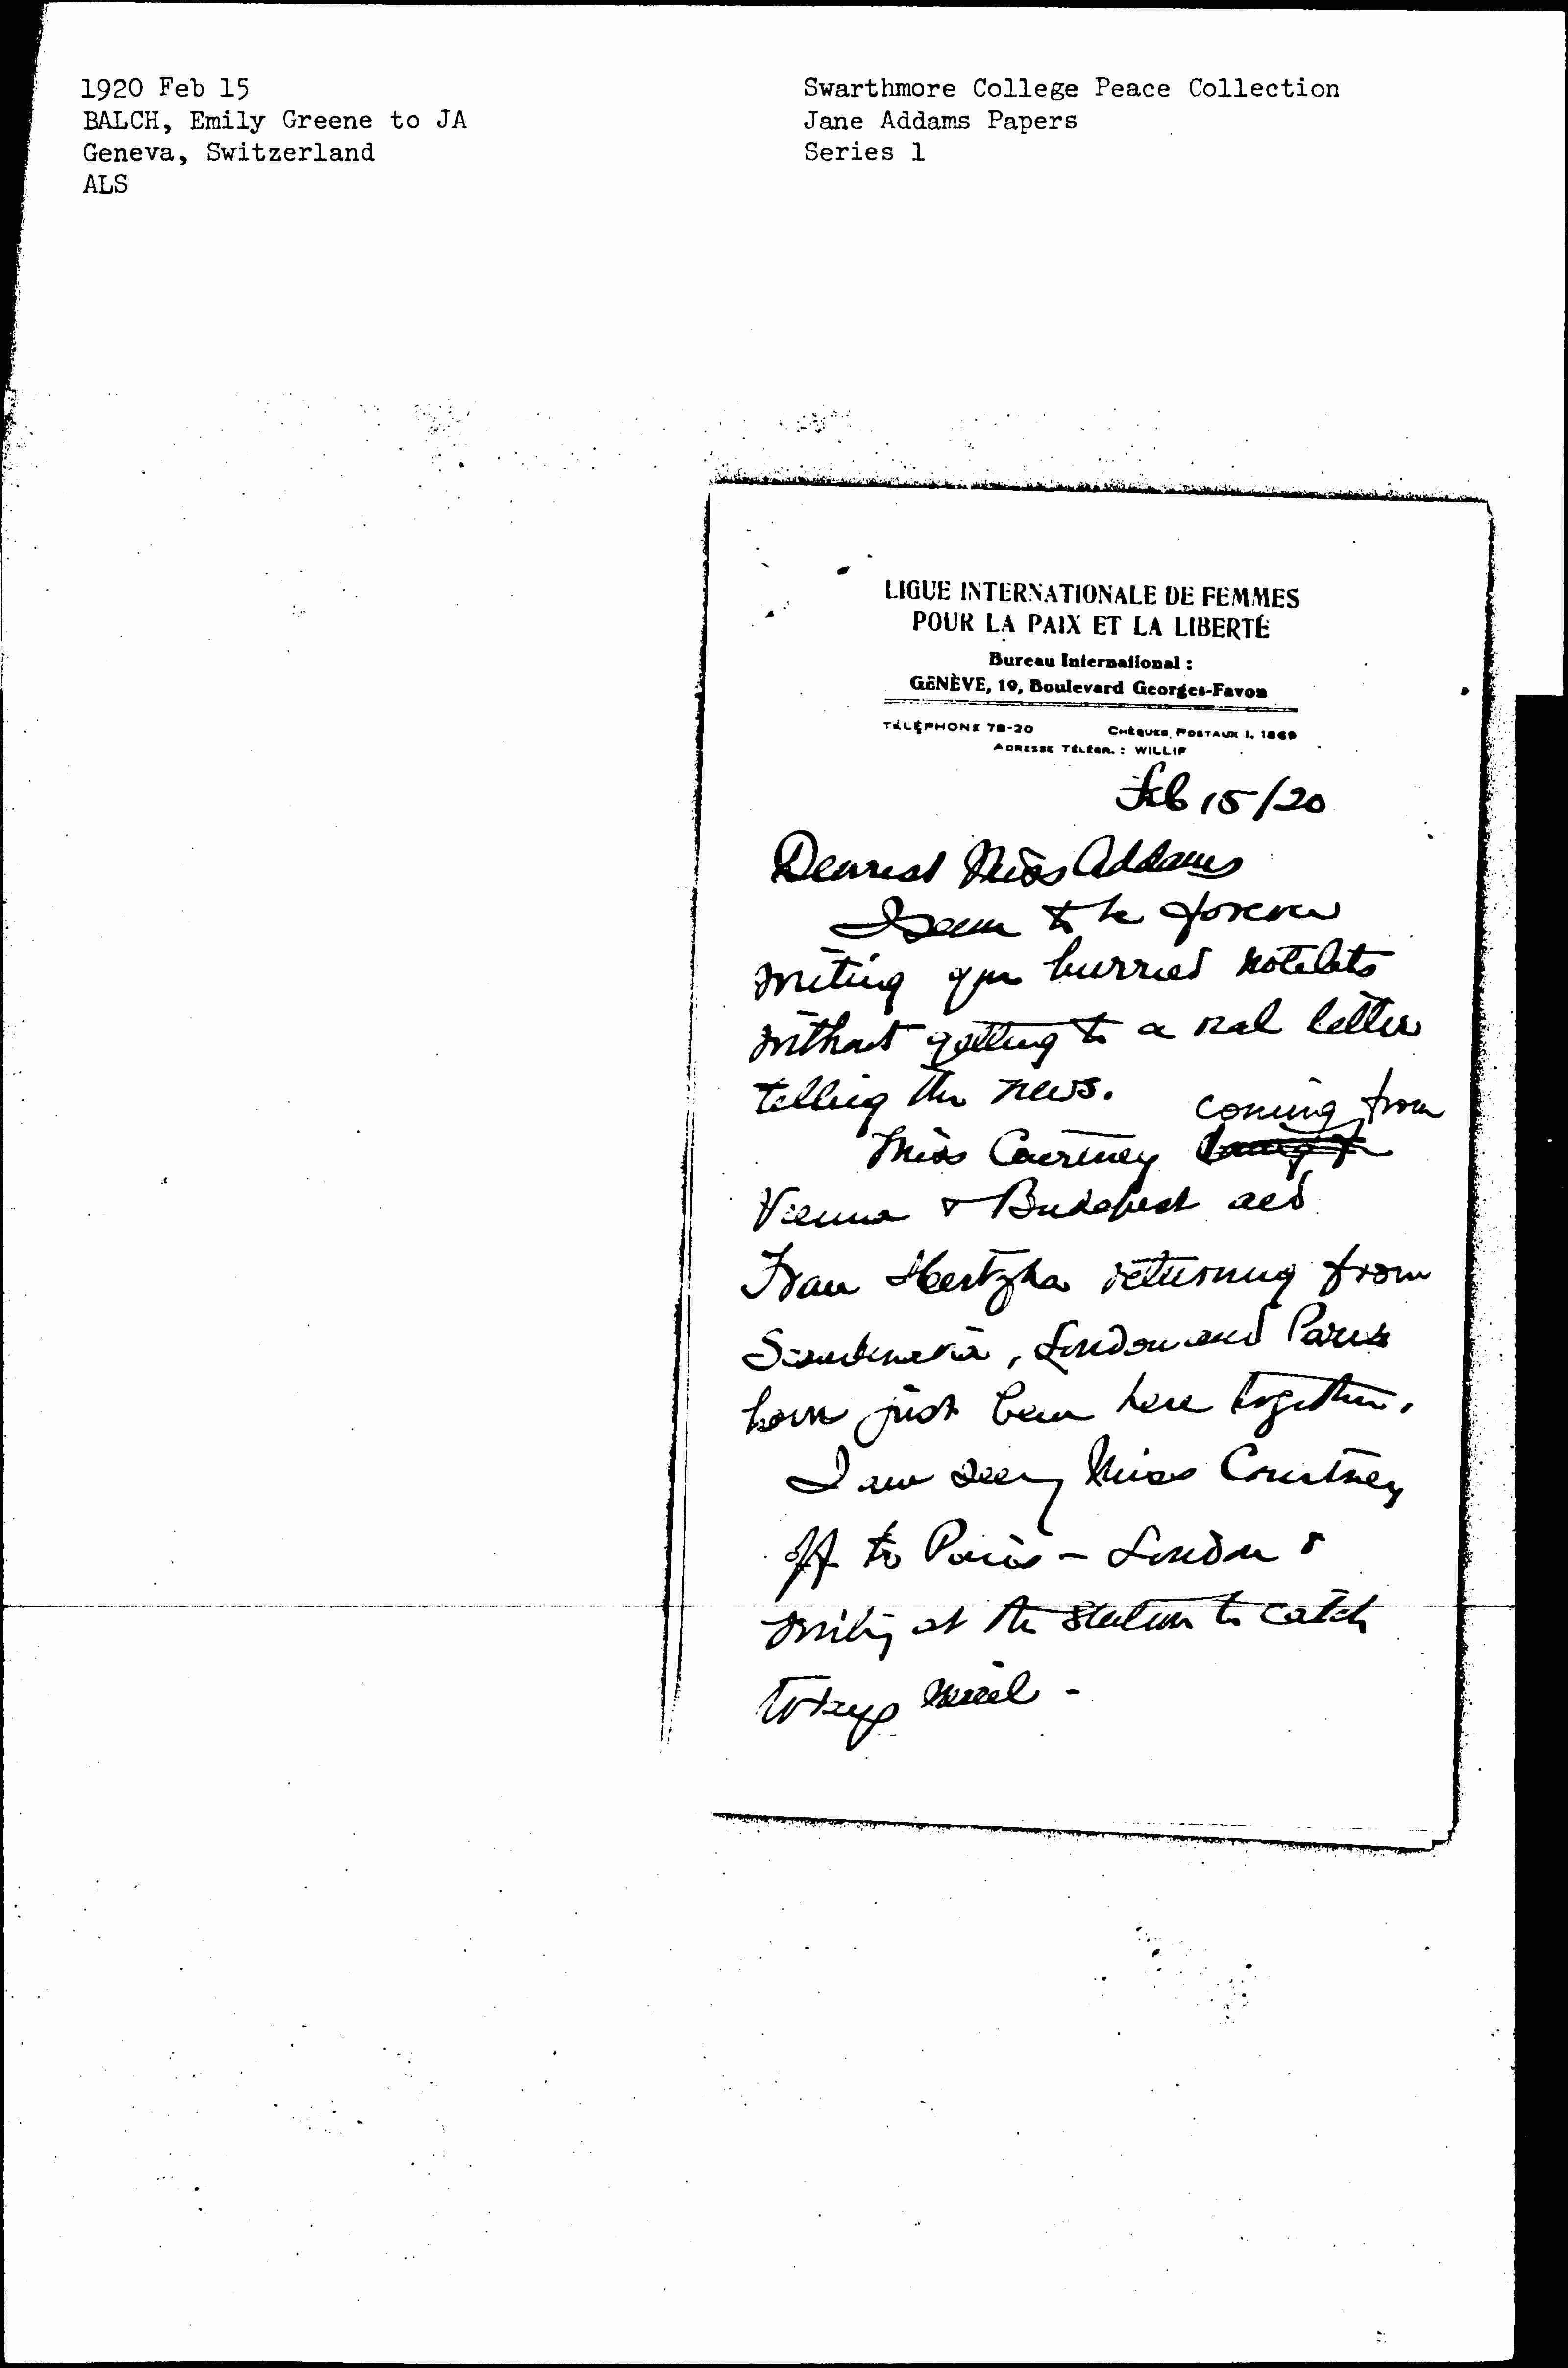 1920 Feb 15
BALCH, Emily Greene to JA
Geneva, Switzerland
ALS
Swarthmore College Peace Collection
Jane Addams Papers
Series 1
LIGUE INTERNATIONALE DE FEMMES
POUR LA PAIX ET LA LIBERTÉ
Bureau International :
GENÈVE, 19, Boulevard Georges-Favon
TÉLÉPHONE 78-20 CHÈQUES POSTAUX I. 1869
ADRESSE TÉLÉGR. : WILLIF
Feb 15/20
Dearest Miss Addams
I seem to be forever
writing you hurried notelets
without getting to a real letter
telling the news.
coming from
Miss Courtney
Vienna & Budapest and
Frau Hertzka returning from
Scandinavia, London and Paris
have just been here together.
I am seeing Miss Courtney
off to Paris - London &
writing at the station to catch
todays mail -